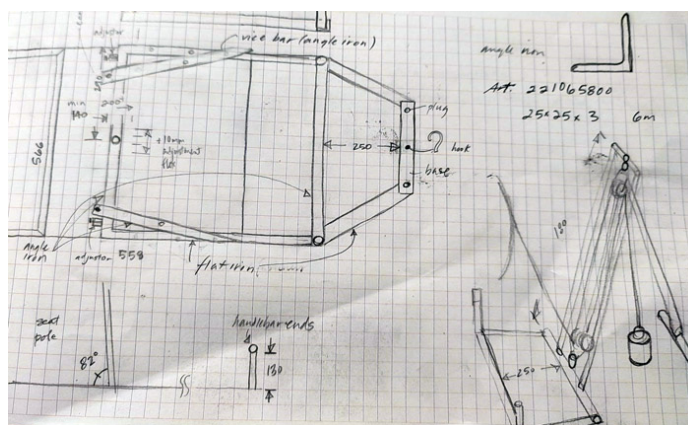 adjustor
vice bar (angle iron)
angle iron
Art. 221065800
25x25x3 6m
min
140
200
±10mm
adjustment
flex
566
250
plug
hook
base
180
angle
iron
adjustor 558
flat iron
seat
pole
82°
handlebar ends
130
250